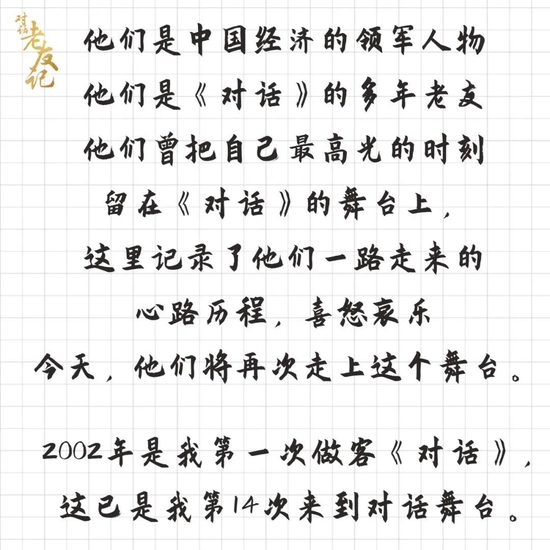 对话
老友记
他们是中国经济的领军人物
他们是《对话》的多年老友
他们曾把自己最高光的时刻
留在《对话》的舞台上，
这里记录了他们一路走来的
心路历程，喜怒哀乐
今天，他们将再次走上这个舞台。
2002年是我第一次做客《对话》，
这已是我第14次来到对话舞台。